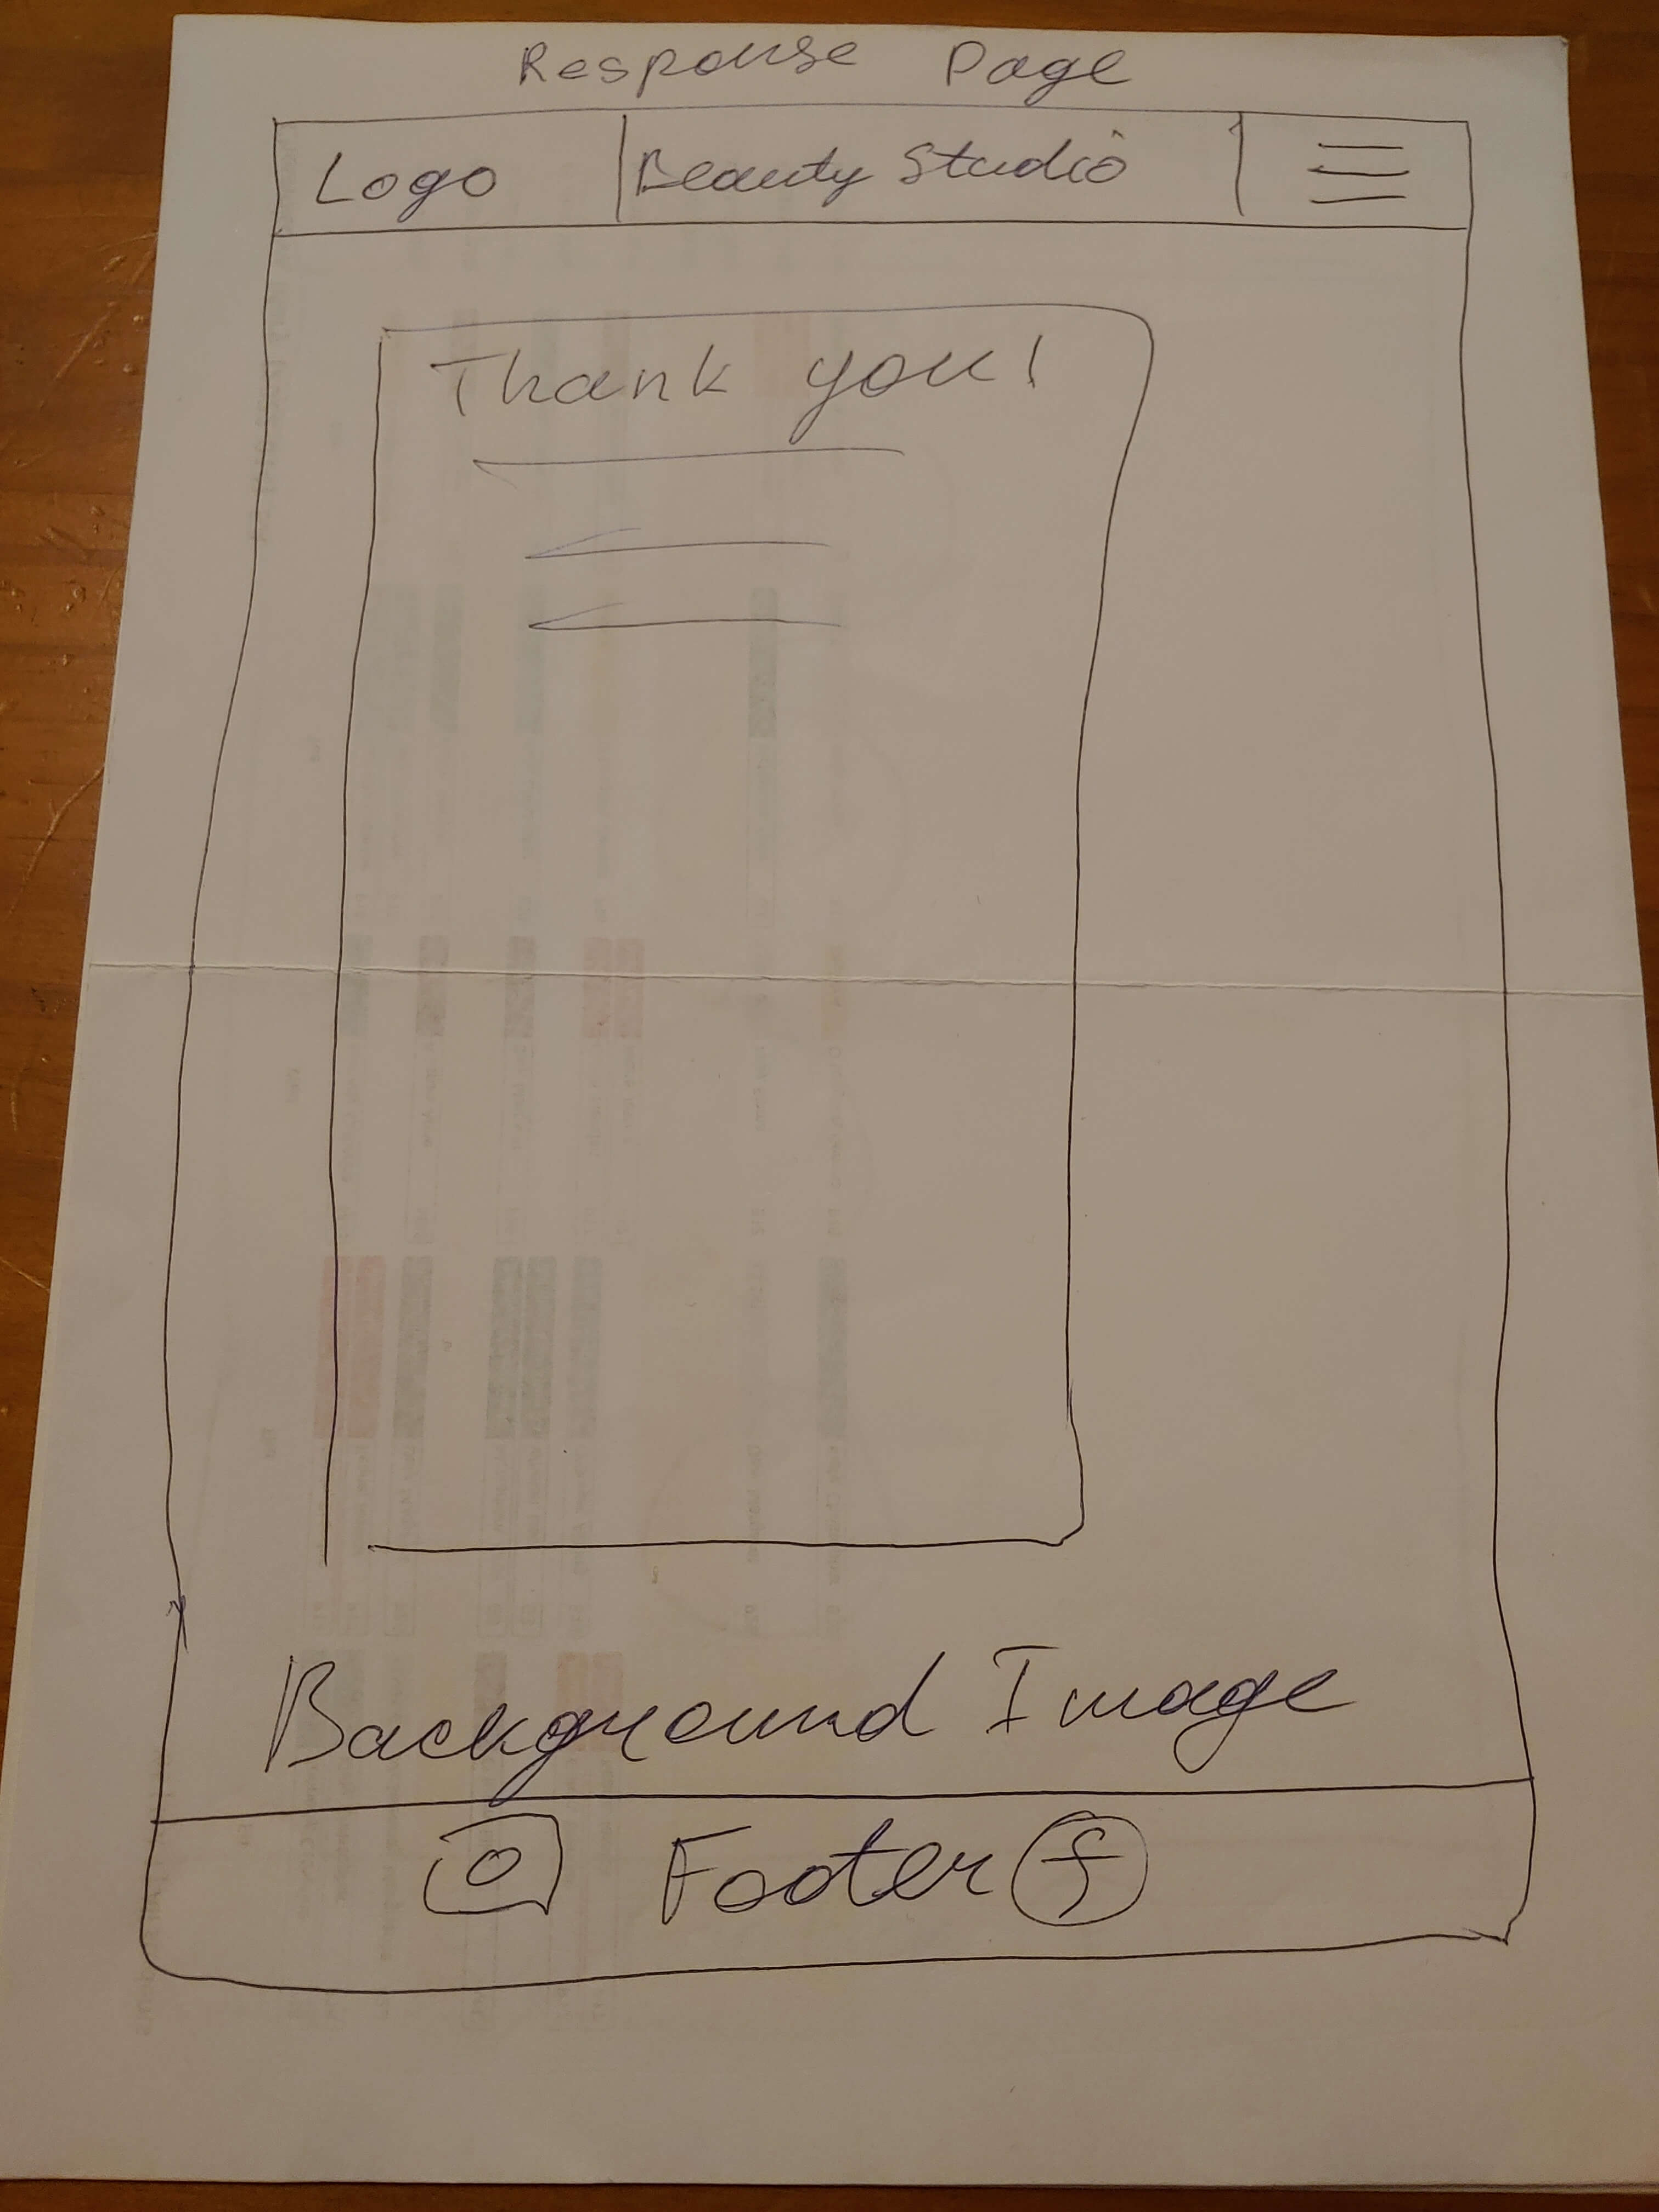 Response Page
Logo
Beauty Studio
Thank you!
Background Image
Footer f